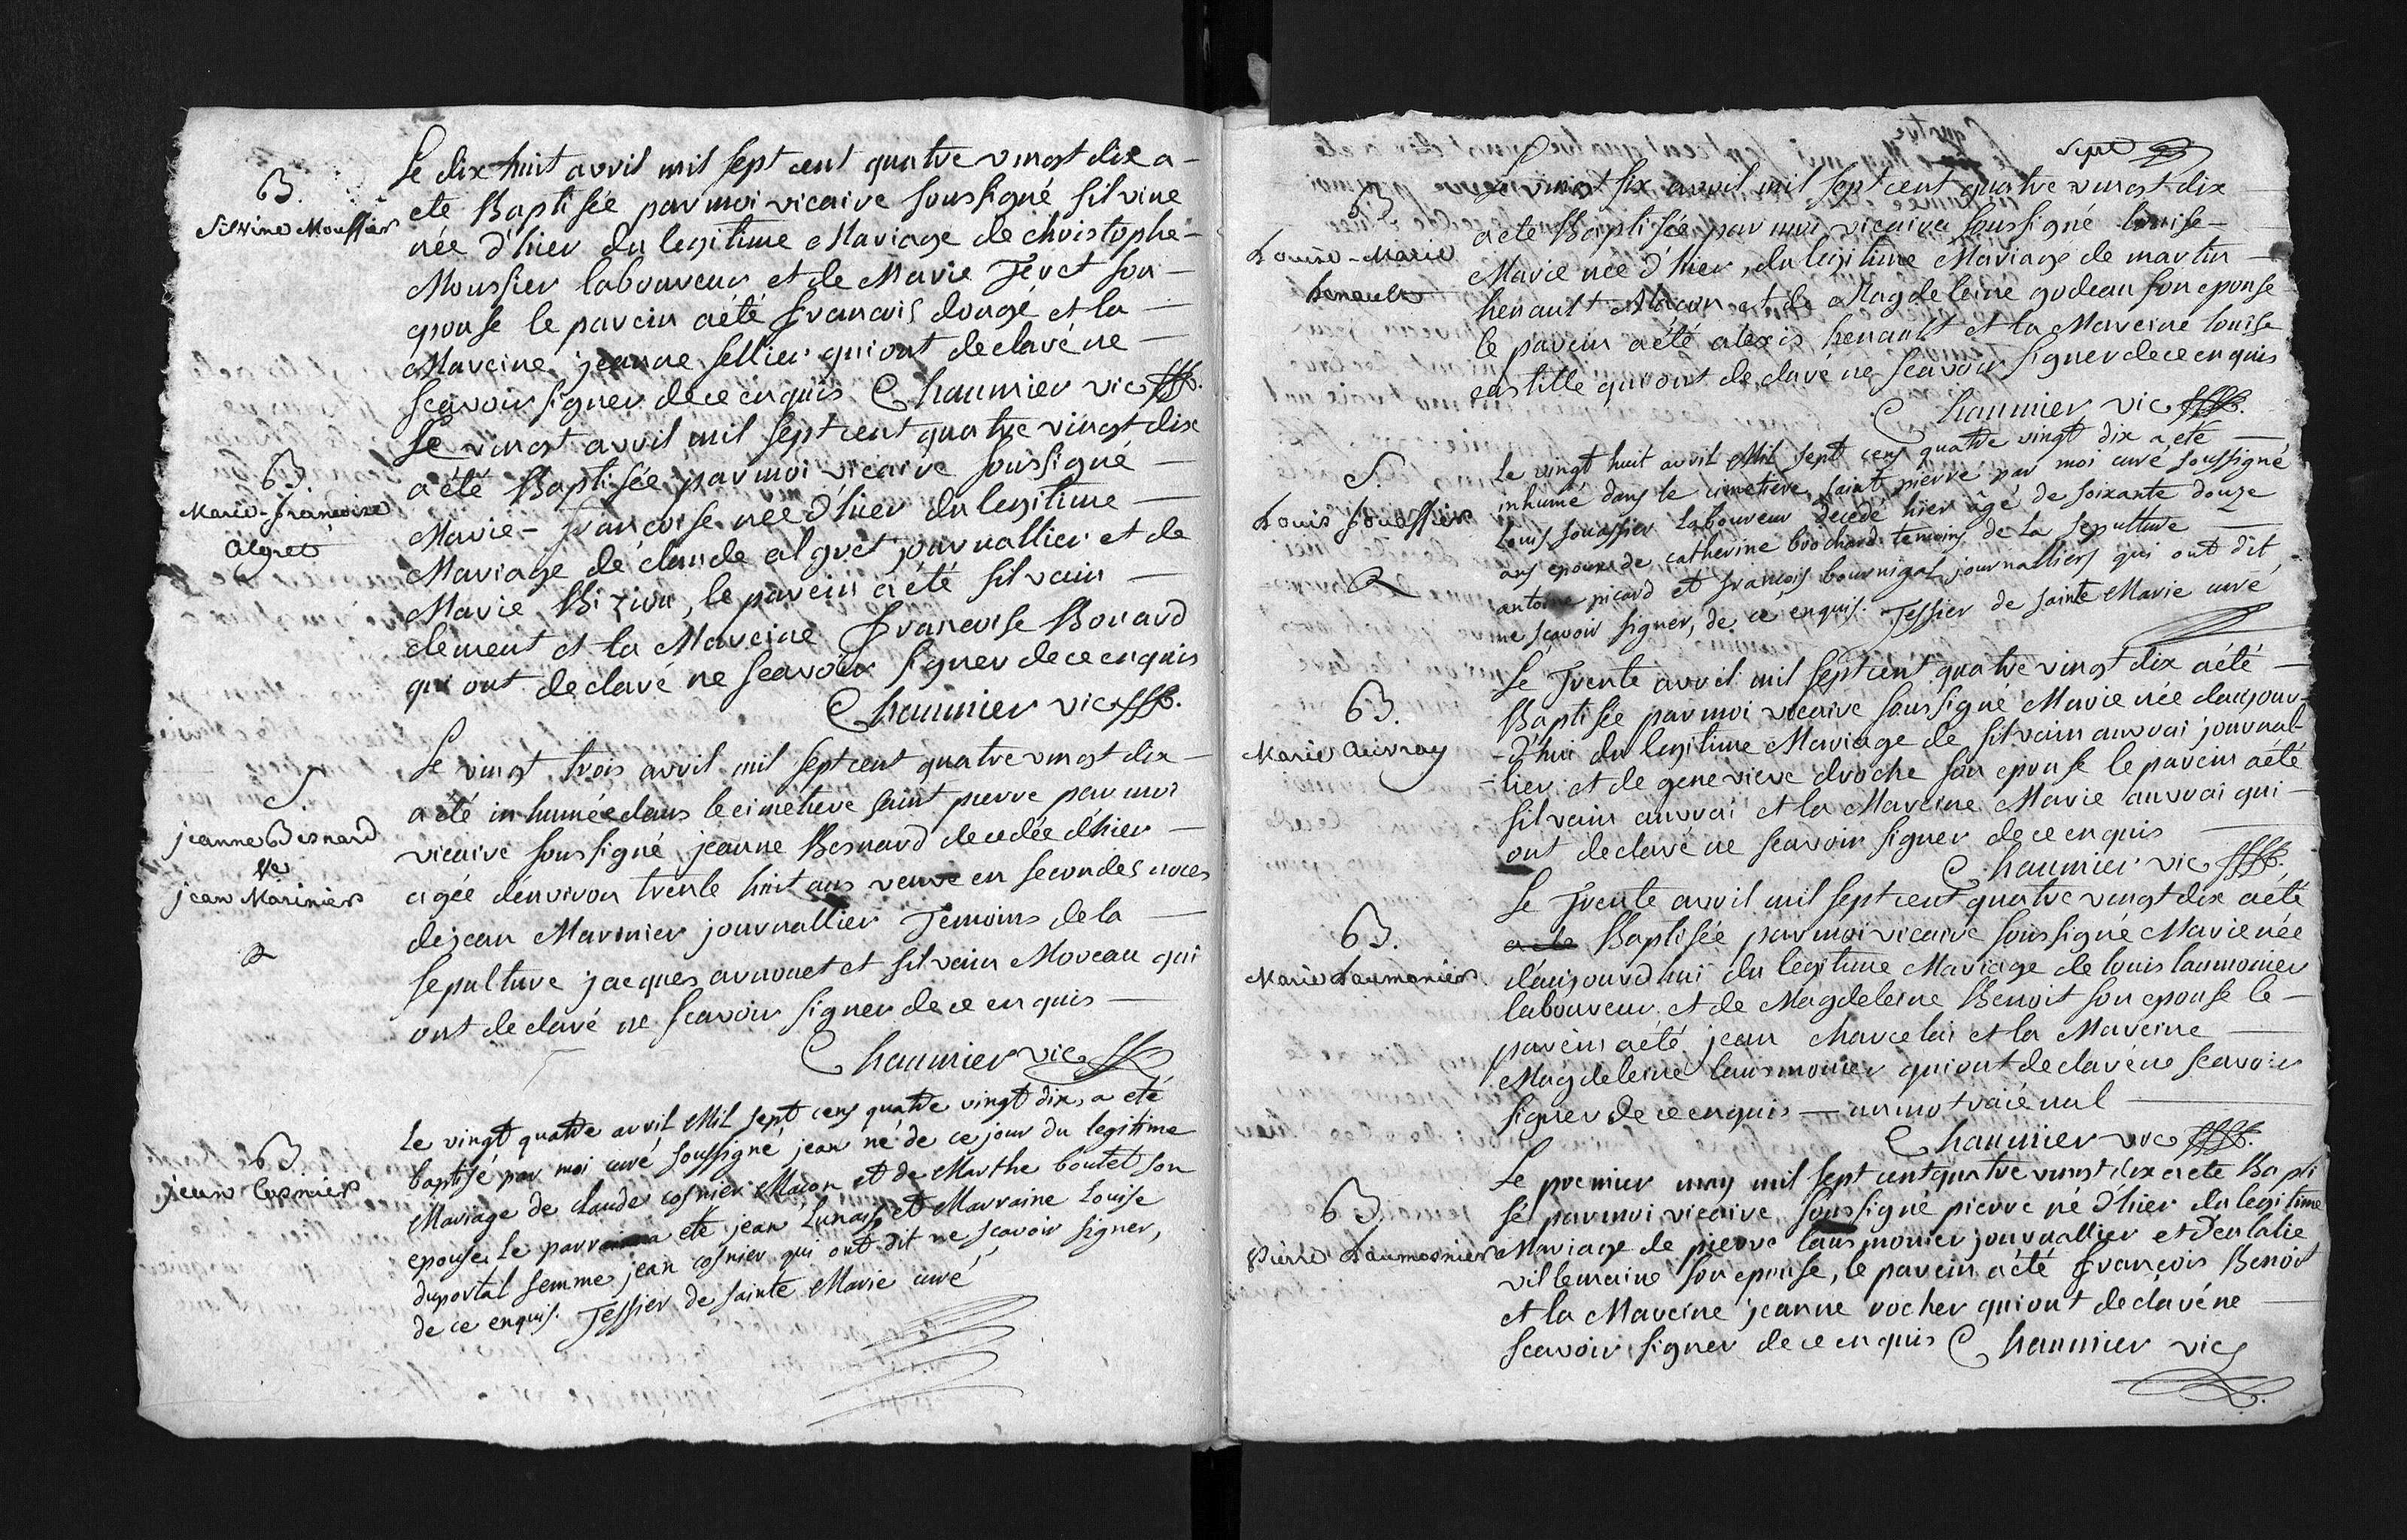 B.
Silvine Moussier
Le dix huit avril mil sept cent quatre vingt dix a
été Baptisée par moi vicaire soussigné silvine
née d'hier du legitime Mariage de christophe
Moussier laboureur et de Marie Feret son
epouse le parein a été francois dougé et la
Mareine jeanne sellier qui ont declaré ne
scavoir signer de ce enquis Chaumier vic
B.
Marie-francoise
Algret
Le vingt avril mil sept cent quatre vingt dix
a été Baptisée par moi vicaire soussigné
Marie-francoise née d'hier du legitime
Mariage de claude algret journallier et de
Marie le parein a été silvain
clement et la Mareine francoise Bouard
qui ont declaré ne scavoir signer de ce enquis
Chaumier vic
S.
jeanne Besnard
Ve
jean Marinier
Le vingt trois avril mil sept cent quatre vingt dix
a été inhumée dans le cimetiere saint pierre par moi
vicaire soussigné jeanne Besnard decedée d'hier
agée denviron trente huit ans veuve en secondes noces
de jean Marinier journallier Temoins de la
sepulture jacques arnouet et silvain Moreau qui
ont declaré ne scavoir signer de ce enquis
Chaumier vic
B.
jean Cosnier
Le vingt quatre avril Mil sept cens quatre vingt dix, a eté
baptisé par moi curé soussigné jean né de ce jour du legitime
Mariage de claude cosnier Macon et de Marthe boutet son
epouse. Le parr eté jean Lunais, et Marraine Louise
duportal femme jean cosnier qui ont dit ne sçavoir signer,
de ce enquis. Tessier de sainte Marie curé
Sept
B
Louise-Marie
henault
Le vingt six avril mil sept cent quatre vingt dix
a été Baptisée par moi vicaire soussigné louise
Marie née d'hier, du legitime Mariage de martin
henault Macon et de Magdeleine godeau son epouse
le parein a été alexis henault et la Mareine louise
castille qui ont declaré ne scavoir signer de ce enquis
Chaumier vic
S.
Louis Souassier
Le vingt huit avril Mil sept cens quatre vingt dix a eté
inhumé dans le cimetiere saint pierre par moi curé soussigné
Louis souassier Laboureur decedé hier âgé de soixante douze
ans epoux de catherine brochard. temoins de la sepulture
antoine picard et françois bournigal journalliers qui ont dit
ne sçavoir signer, de ce enquis. Tessier de sainte Marie curé
B.
Marie Auvray
Le Trente avril mil sept cent quatre vingt dix a été
Baptisée par moi vicaire soussigné Marie née daujour-
-d'hui du legitime Mariage de silvain auvrai journal-
-lier et de genevieve droche son epouse le parein a été
silvain auvrai et la Mareine Marie auvrai qui
ont declaré ne scavoir signer de ce enquis
Chaumier vic
B.
Marie Laumonier
Le Trente avril mil sept cent quatre vingt dix a été
a été Baptisée par moi vicaire soussigné Marie née
d'aujourdhui du legitime Mariage de louis laumonier
laboureur et de Magdeleine Benoit son epouse le
parein a été jean charcelai et la Mareine
Magdeleine lausmonier qui ont declaré ne scavoir
signer de ce enquis — un mot raié nul
Chaumier vic
B.
Pierre Laumosnier
Le premier may mil sept cent quatre vingt dix a été Bapti
sé par moi vicaire soussigné pierre né d'hier du legitime
Mariage de pierre lausmonier journallier et d'eulalie
villemaine son epouse, le parein a été francois Benoit
et la Mareine jeanne rocher qui ont declaré ne
scavoir signer de ce enquis Chaumier vic